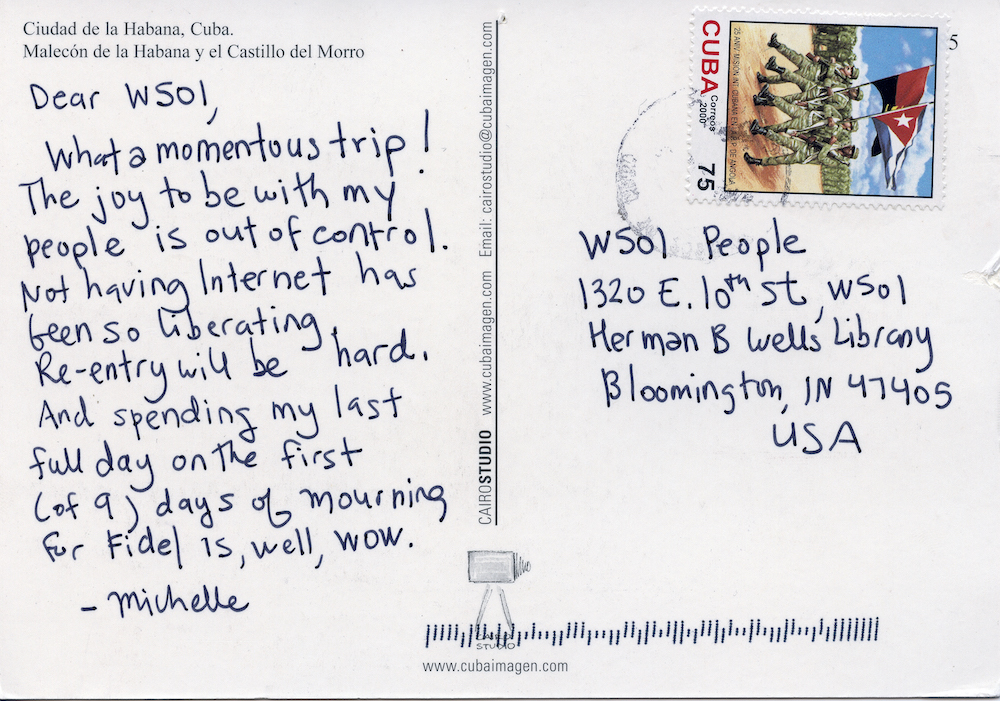 Ciudad de la Habana, Cuba.
Malecón de la Habana y el Castillo del Morro
Dear WSO1,
What a momentous trip!
The joy to be with my
people is out of control.
Not having Internet has
been so liberating.
Re-entry will be hard.
And spending my last
full day on the first
(of 9) days of mourning
for Fidel is, well, wow.
- Michelle
CAIROSTUDIO www.cubaimagen.com Email: cairostudio@cubaimagen.com
CAIRO
STUDIO
www.cubaimagen.com
CUBA
Correos
2000
75
25 ANIV. MISION INT. CUBANA EN LA R.P. DE ANGOLA
5
WSO1 People
1320 E. 10th St, WSO1
Herman B Wells Library
Bloomington, IN 47405
USA